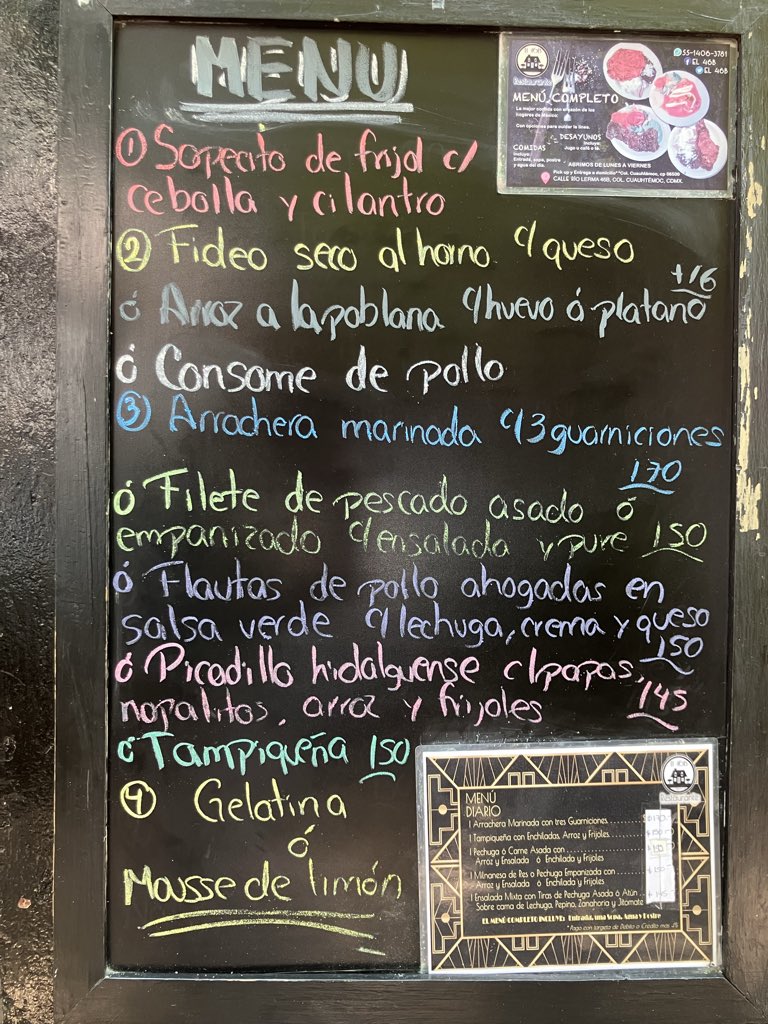 MENU
① Sopecito de frijol c/
cebolla y cilantro
② Fideo seco al horno c/queso
ó Arroz a la poblana c/huevo ó platano +16
ó Consome de pollo
③ Arrachera marinada c/3 guarniciones
170
ó Filete de pescado asado ó
empanizado c/ensalada y pure 150
ó Flautas de pollo ahogadas en
salsa verde c/lechuga, crema y queso
150
ó Picadillo hidalguense c/papas,
nopalitos, arroz y frijoles 145
ó Tampiqueña 150
④ Gelatina
ó
Mousse de limón
Restaurante
55-1406-3781
EL 46B
EL 46B
MENÚ COMPLETO
La mejor comida con sazón de los
hogares de México:
Con opciones para cuidar la línea.
DESAYUNOS
Incluye:
Jugo o café o té.
COMIDAS
Incluye:
Entrada, sopa, postre
y agua del día.
ABRIMOS DE LUNES A VIERNES
Pick up y Entrega a domicilio* *Col. Cuauhtémoc, cp 06500
CALLE RÍO LERMA 46B, COL. CUAUHTÉMOC, CDMX.
Restaurante
MENÚ
DIARIO
1 Arrachera Marinada con tres Guarniciones
1 Tampiqueña con Enchiladas, Arroz y Frijoles
1 Pechuga ó Carne Asada con
Arroz y Ensalada ó Enchilada y Frijoles
1 Milanesa de Res o Pechuga Empanizada con
Arroz y Ensalada ó Enchilada y Frijoles
1 Ensalada Mixta con Tiras de Pechuga Asada ó Atún
Sobre cama de Lechuga, Pepino, Zanahoria y Jitomate
EL MENÚ COMPLETO INCLUYE: Entrada, una Sopa, Agua y Postre
* Pago con tarjeta de Débito o Crédito más 4%